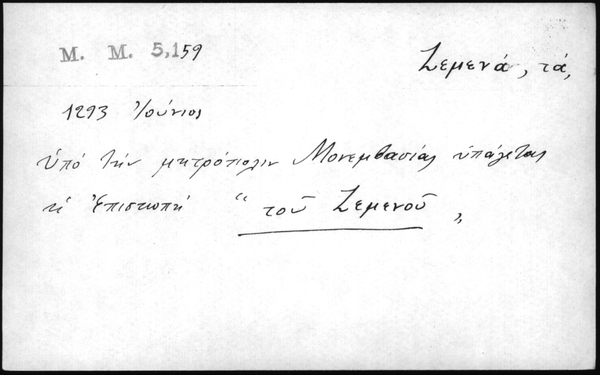 M. M. 5,159
Ζεμενά, τά,
1293 Ἰούνιος
Ὑπό τήν μητρόπολιν Μονεμβασίας ὑπάγεται
ἡ Ἐπισκοπή “ τοῦ Ζεμενοῦ „